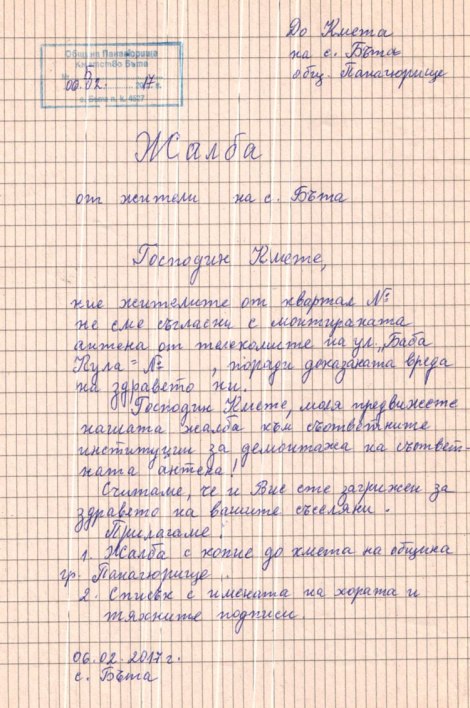 До Кмета
на с. Бъта
общ. Панагюрище
Община Панагюрище
Кметство Бъта
№ 5
06.02. 2017 г.
с. Бъта п. к. 4527
Жалба
от жители на с. Бъта
Господин Кмете,
ние жителите от квартал №
не сме съгласни с монтираната
антена от телекомите на ул. „Баба
Кула" №, поради доказаната вреда
на здравето ни.
Господин Кмете, моля предвижете
нашата жалба към съответните
институции за демонтажа на съответ-
ната антена!
Считаме, че и Вие сте загрижен за
здравето на вашите съселяни.
Прилагаме:
1. Жалба с копие до кмета на община
гр. Панагюрище.
2. Списък с имената на хората и
техните подписи.
06.02.2017г.
с. Бъта